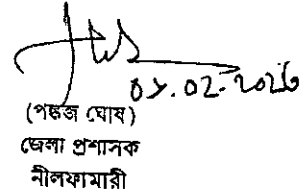 ০১.০২-২০২৬
(পঙ্কজ ঘোষ)
জেলা প্রশাসক
নীলফামারী